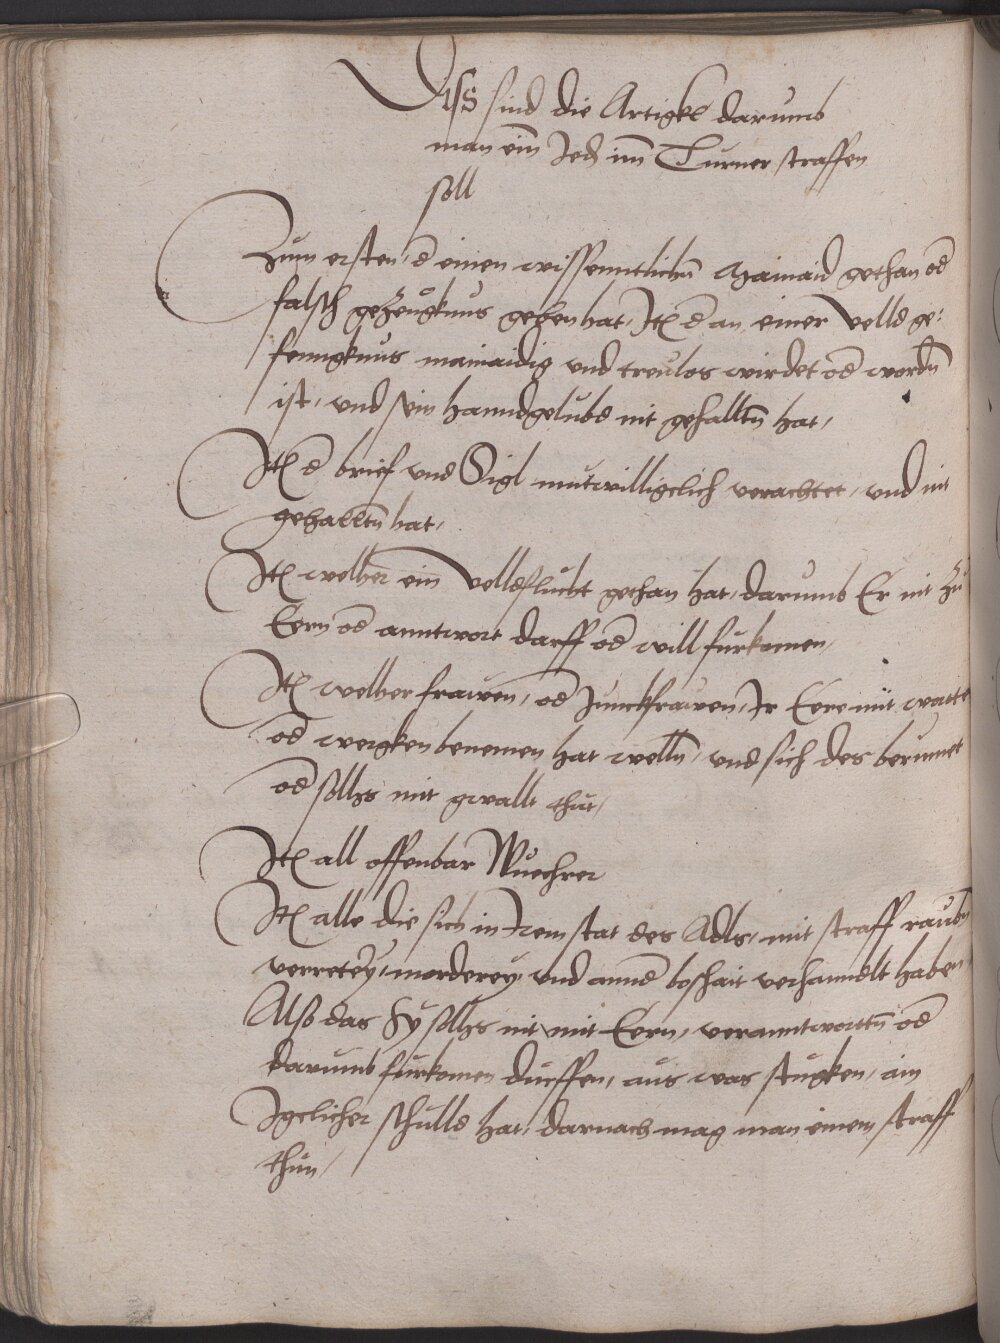 Diss sind die Artigkl darumb
man ein Jedn im Turner straffen
soll
Zum ersten, d einen wissenntlichn Mainaid gethan od
falsch gezeugknus geben hat, Itm d an einer Velld ge:
fenngknus mainaidig vnd treulos wirdet od wordn
ist, vnd sein hanndgelubd nit gehalltn hat,
Itm d brief vnd Sigl mutwilligclich verachtet, vnd nit
gehalltn hat,
Itm welher ein Velldflucht gethan hat, darumb Er nit zu
Eern od anntwort darff od will furkomen,
Itm welher frawen, od Junckfrawen, Ir Eere mit wortt
od wergken benemen hat welln, vnd sich des berumet
od sollhs mit gwallt thut,
Itm all offenbar Wuechrer
Itm alle die sich in Irem stat des Adls, mit straff raubn
verreterey, morderey vnd annd boshait verhanndlt haben,
Also das Sy sollhs nit mit Eern, veranntworttn od
darumb furkomen durffen, aus was stugken, ain
Igclicher schulld hat, darnach mag man einem straff
thun,